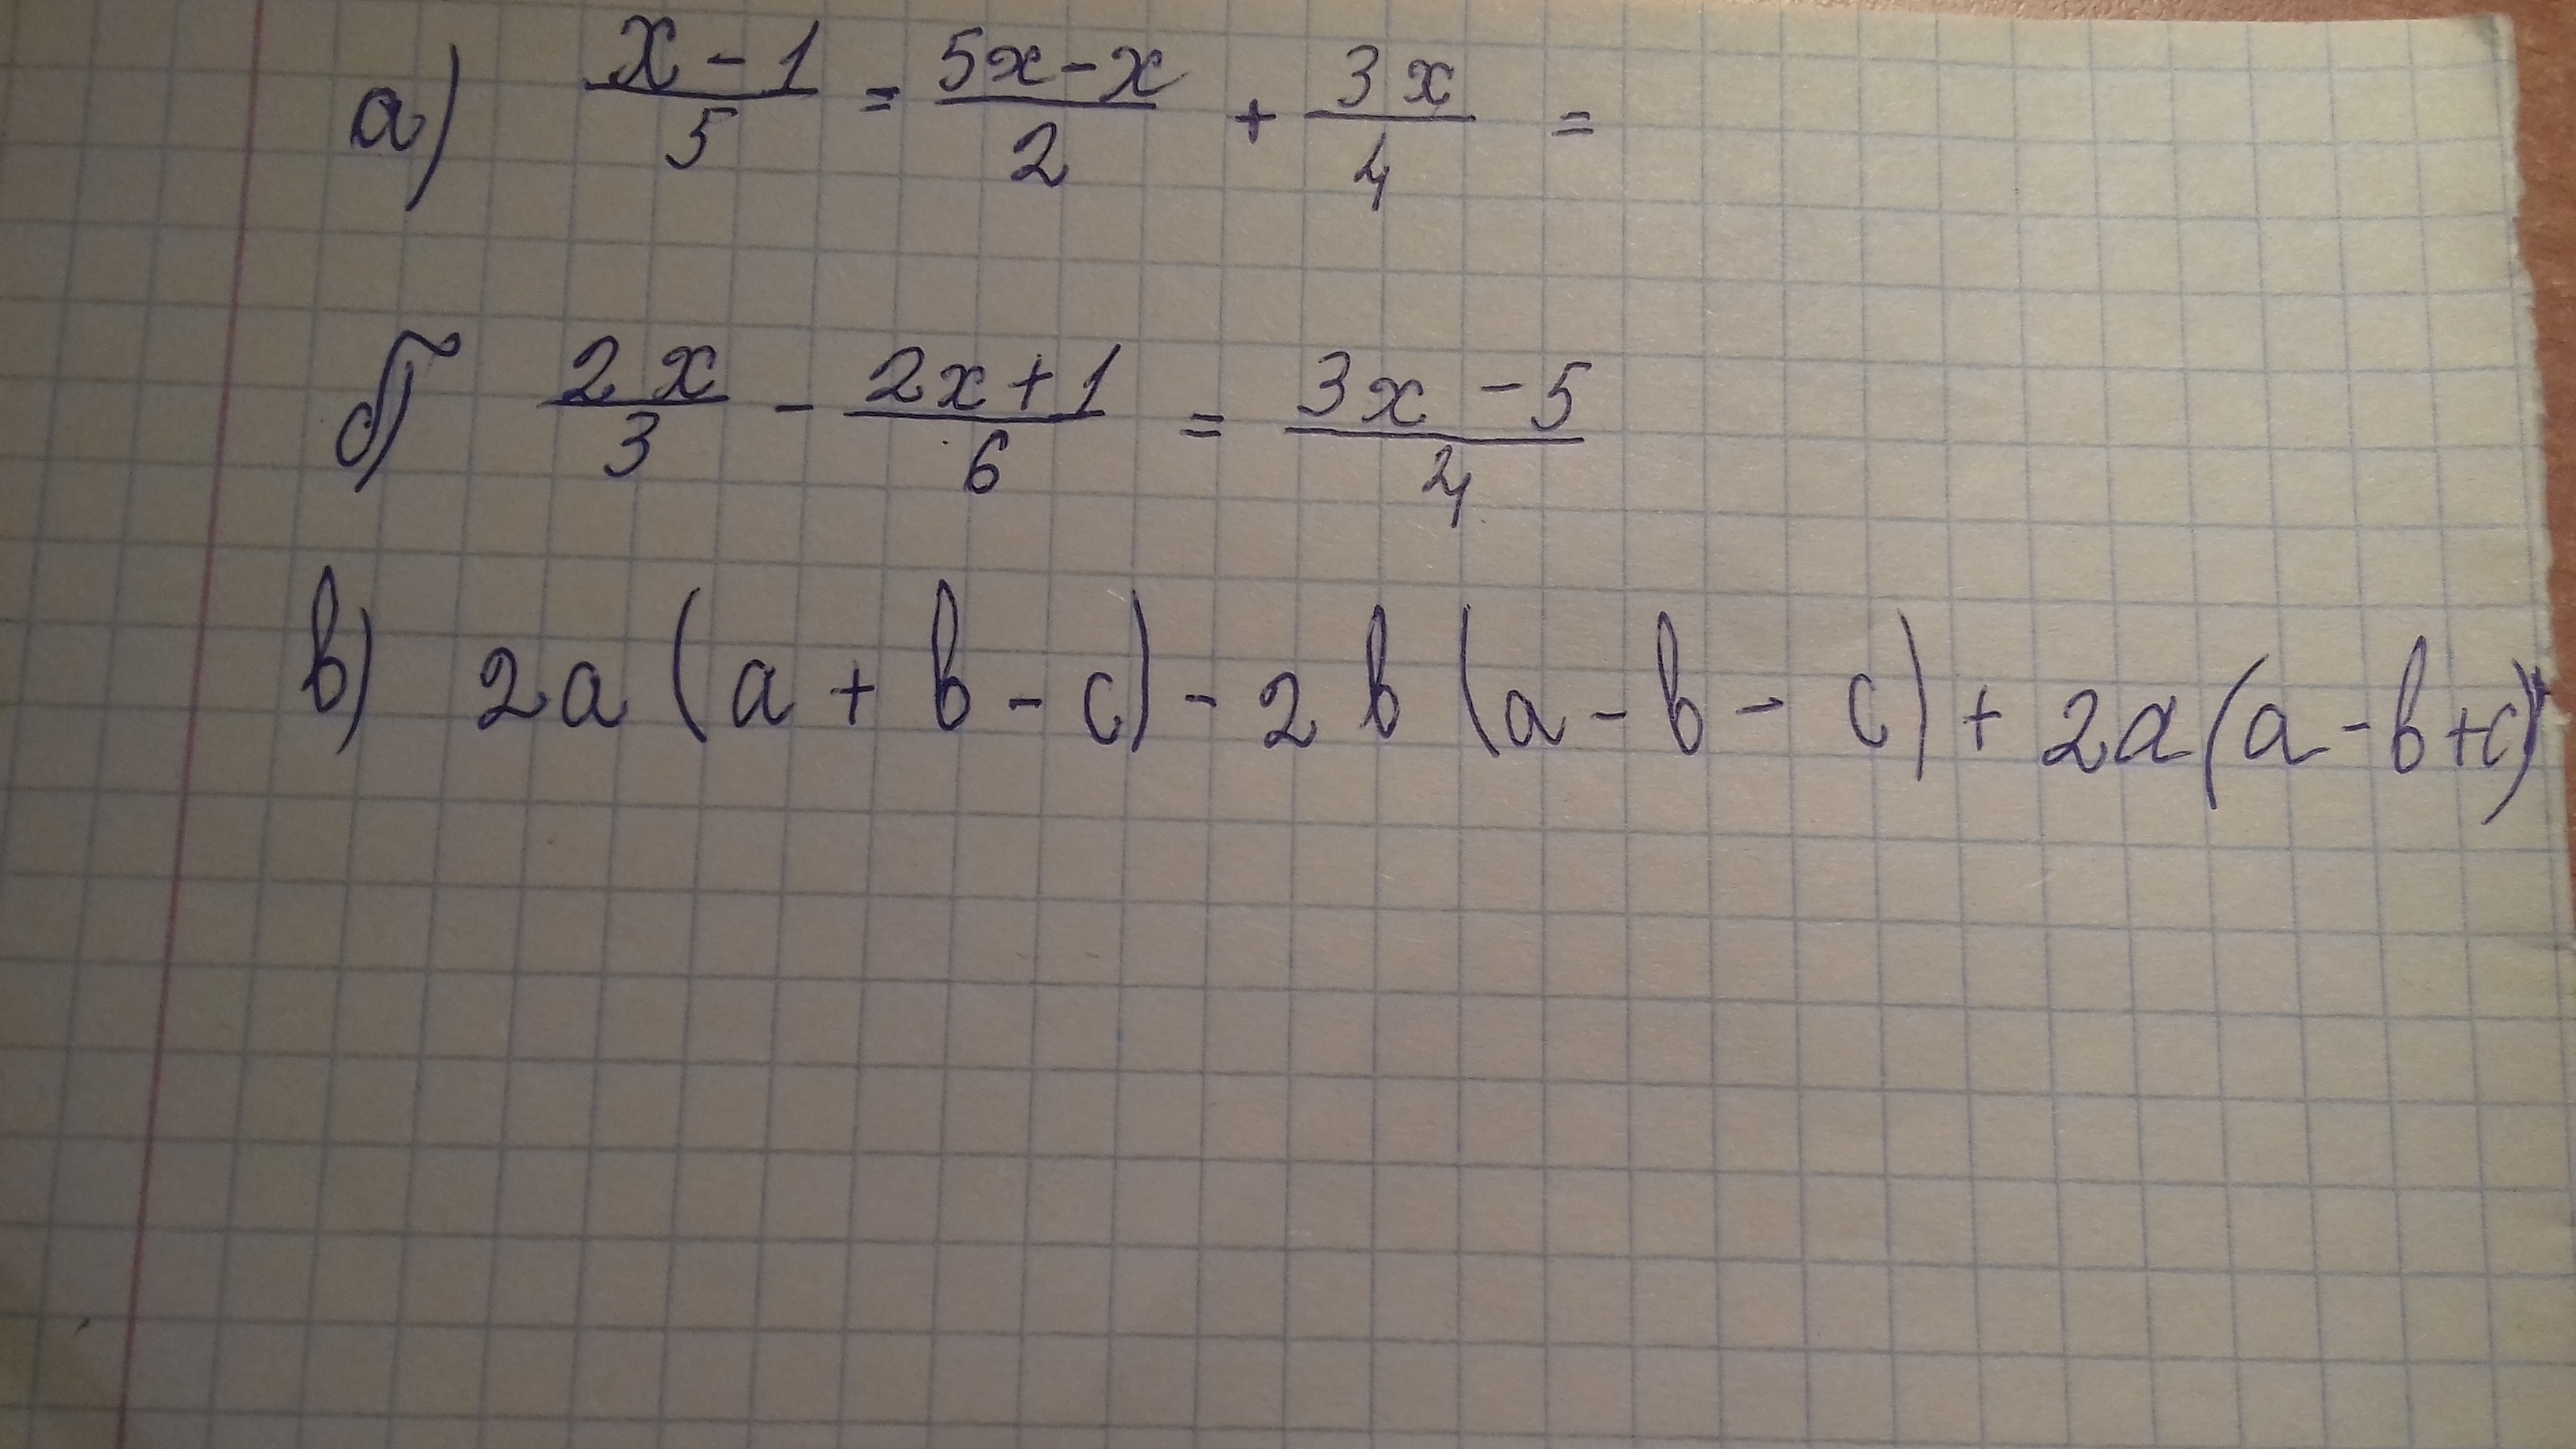 а) x-1/5 = 5x-x/2 + 3x/4 =
б) 2x/3 - 2x+1/6 = 3x-5/4
в) 2a(a+b-c)-2b(a-b-c)+2a(a-b+c)